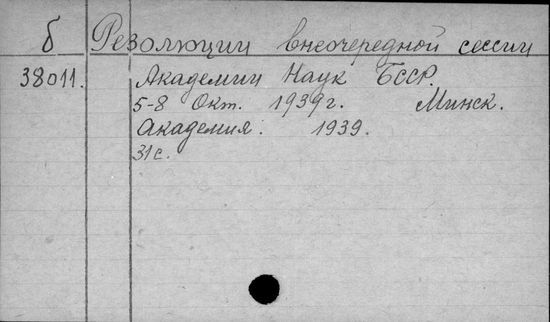 б Резолюции внеочередной сессии
38011. Академии Наук БССР.
5-8 Окт. 1939г. Минск.
Академия. 1939.
31с.